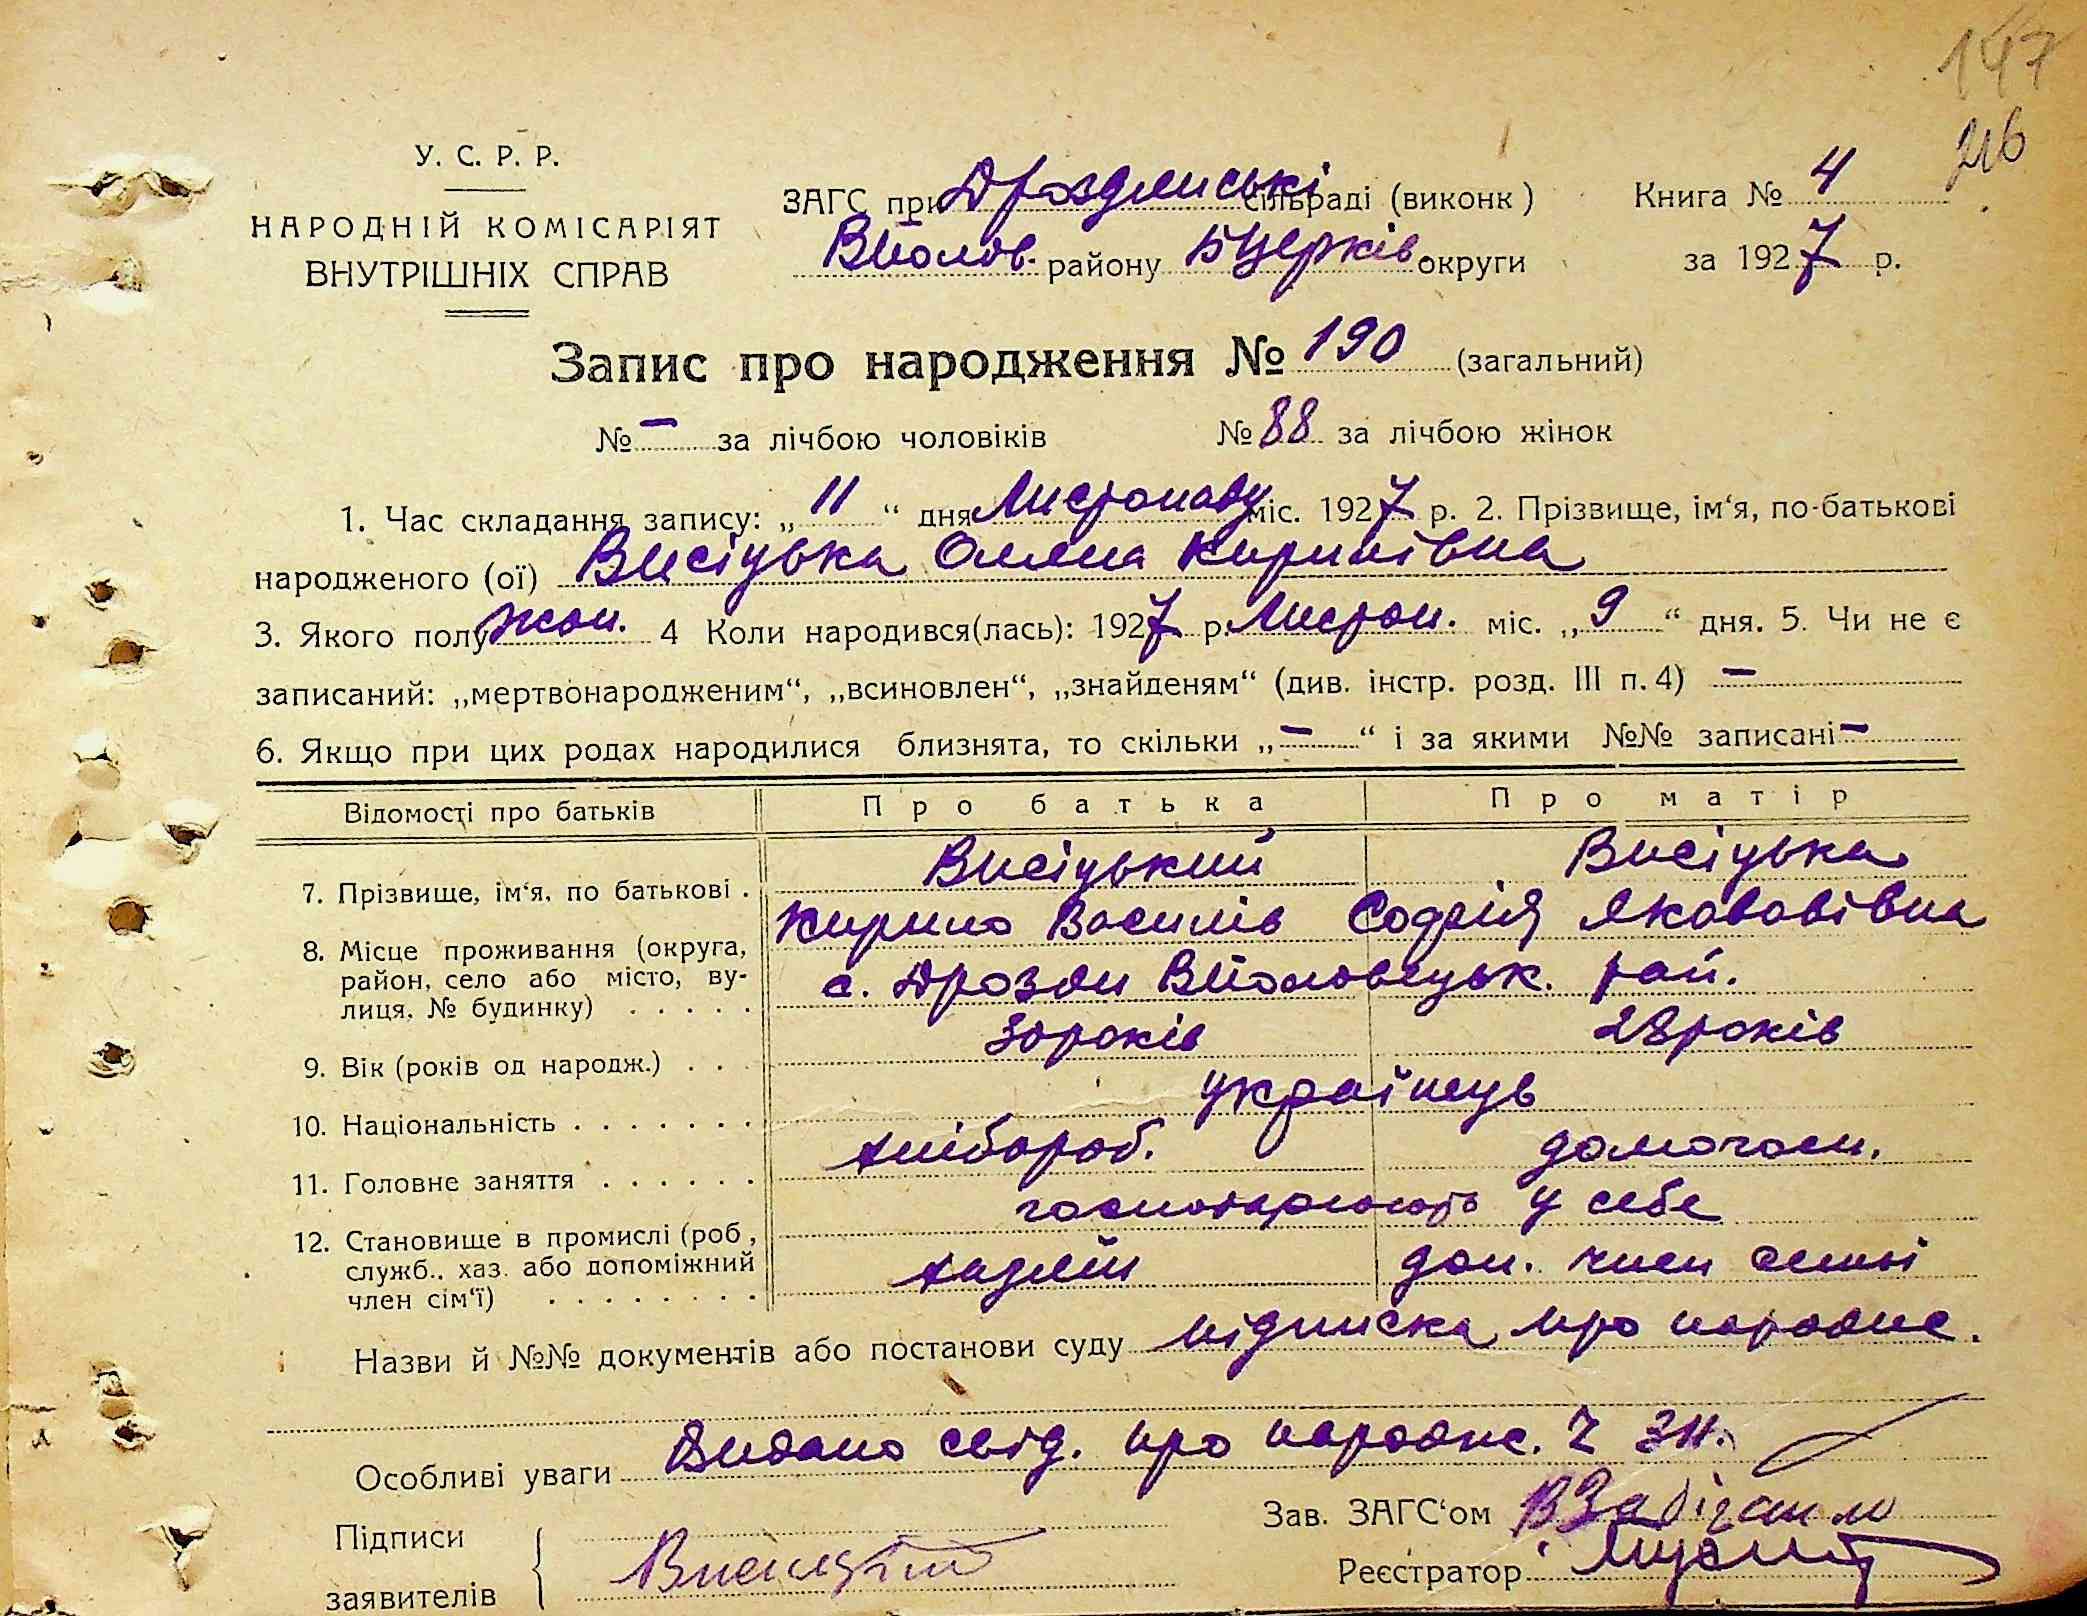 147
216
У. С. Р. Р.
НАРОДНІЙ КОМІСАРІЯТ
ВНУТРІШНІХ СПРАВ
ЗАГС при Дроздянські сільраді (виконк) Книга № 4
ВПолов. району БЦерків округи за 1927 р.
Запис про народження № 190 (загальний)
№ – за лічбою чоловіків № 88 за лічбою жінок
1. Час складання запису: „11“ дня Листопаду міс. 1927 р. 2. Прізвище, ім‘я, по-батькові
народженого (ої) Висіцька Оляна Кирилівна
3. Якого полу жон. 4 Коли народився(лась): 1927 р. Листоп. міс. „9“ дня. 5. Чи не є
записаний: „мертвонародженим“, „всиновлен“, „знайденям“ (див. інстр. розд. III п. 4) –
6. Якщо при цих родах народилися близнята, то скільки „–“ і за якими №№ записані –
Відомості про батьків Про батька Про матір
7. Прізвище, ім‘я, по батькові . Висіцький Висіцька
Кирило Василів Софія Якововівна
8. Місце проживання (округа, район, село або місто, вулиця, № будинку) . . . . . с. Дрозди ВПоловецьк. рай.
9. Вік (років од народж.) . . . 30 років 28 років
10. Національність . . . . . . . українець
11. Головне заняття . . . . . . хлібороб. домогосп.
господарюють у себе
12. Становище в промислі (роб, служб., хаз. або допоміжний член сім‘ї) . . . . . . . . хазяїн доп. член семьі
Назви й №№ документів або постанови суду підписка про народже.
Особливі уваги Видано свід. про народже. Ч 311.
Підписи
заявителів
Висіцкій
Зав. ЗАГС‘ом
Реєстратор